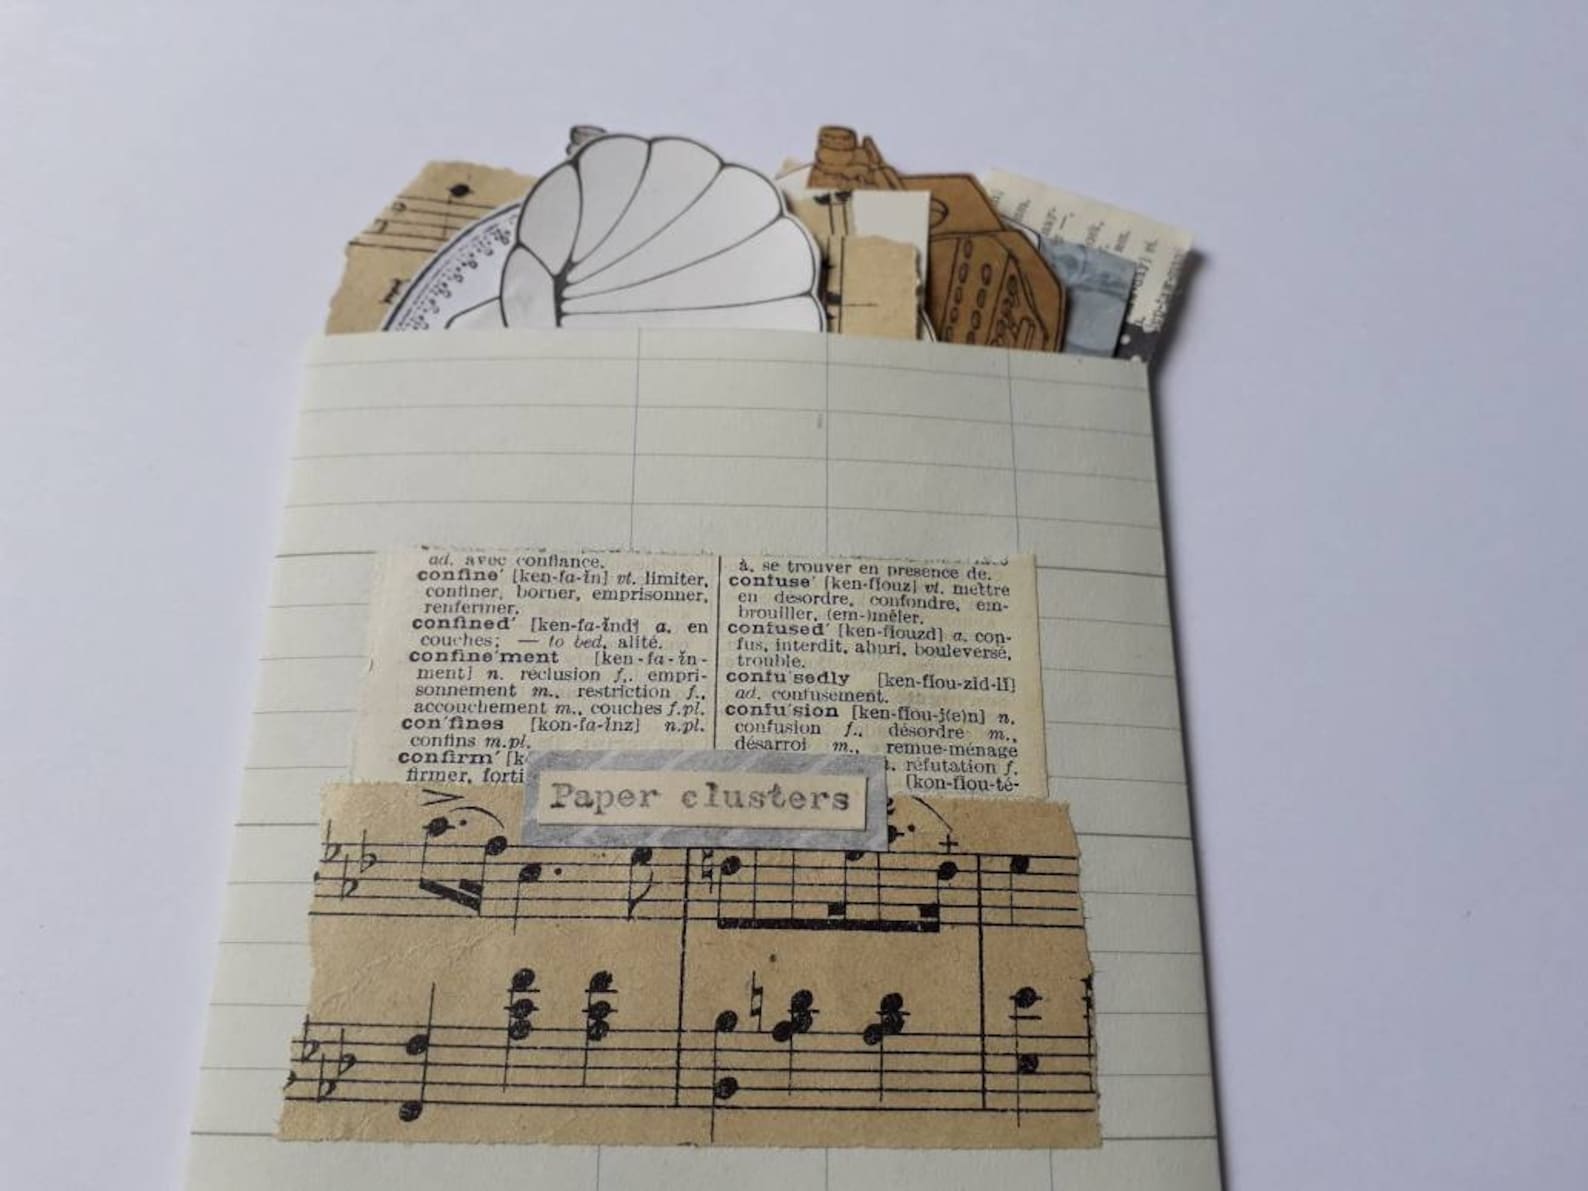 ad. avec confiance.
confine' [ken-fa-ĭn] vt. limiter,
confiner, borner, emprisonner,
renfermer.
confined' [ken-fa-ĭnd] a. en
couches; — to bed, alité.
confine'ment [ken-fa-ĭn-
ment] n. réclusion f., empri-
sonnement m., restriction f.,
accouchement m., couches f.pl.
con'fines [kon-fa-ĭnz] n.pl.
confins m.pl.
confirm' [k
firmer, forti
à, se trouver en présence de.
confuse' [ken-fiouz] vt. mettre
en désordre, confondre, em-
brouiller, (em-)mêler.
confused' [ken-fiouzd] a. con-
fus, interdit, ahuri, bouleversé,
trouble.
confu'sedly [ken-fiou-zid-lĭ]
ad. confusément.
confu'sion [ken-fiou-j(e)n] n.
confusion f., désordre m.,
désarroi m., remue-ménage
réfutation f.
[kon-fiou-té-
Paper clusters